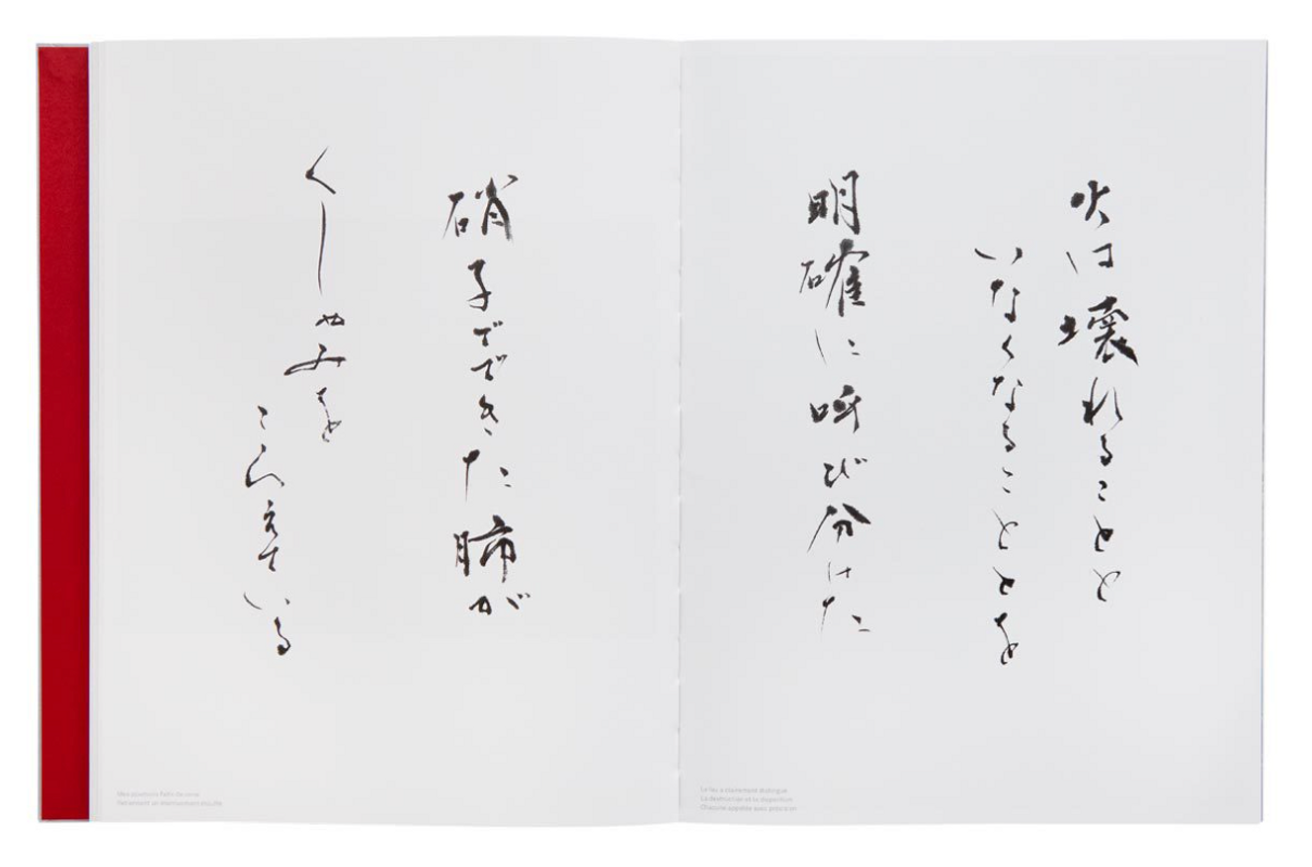 火は壊れることと
いなくなることとを
明確に呼び分けた
硝子でできた肺が
くしゃみを
こらえている
Le feu a clairement distingué
La destruction et la disparition
Mes poumons faits de verre